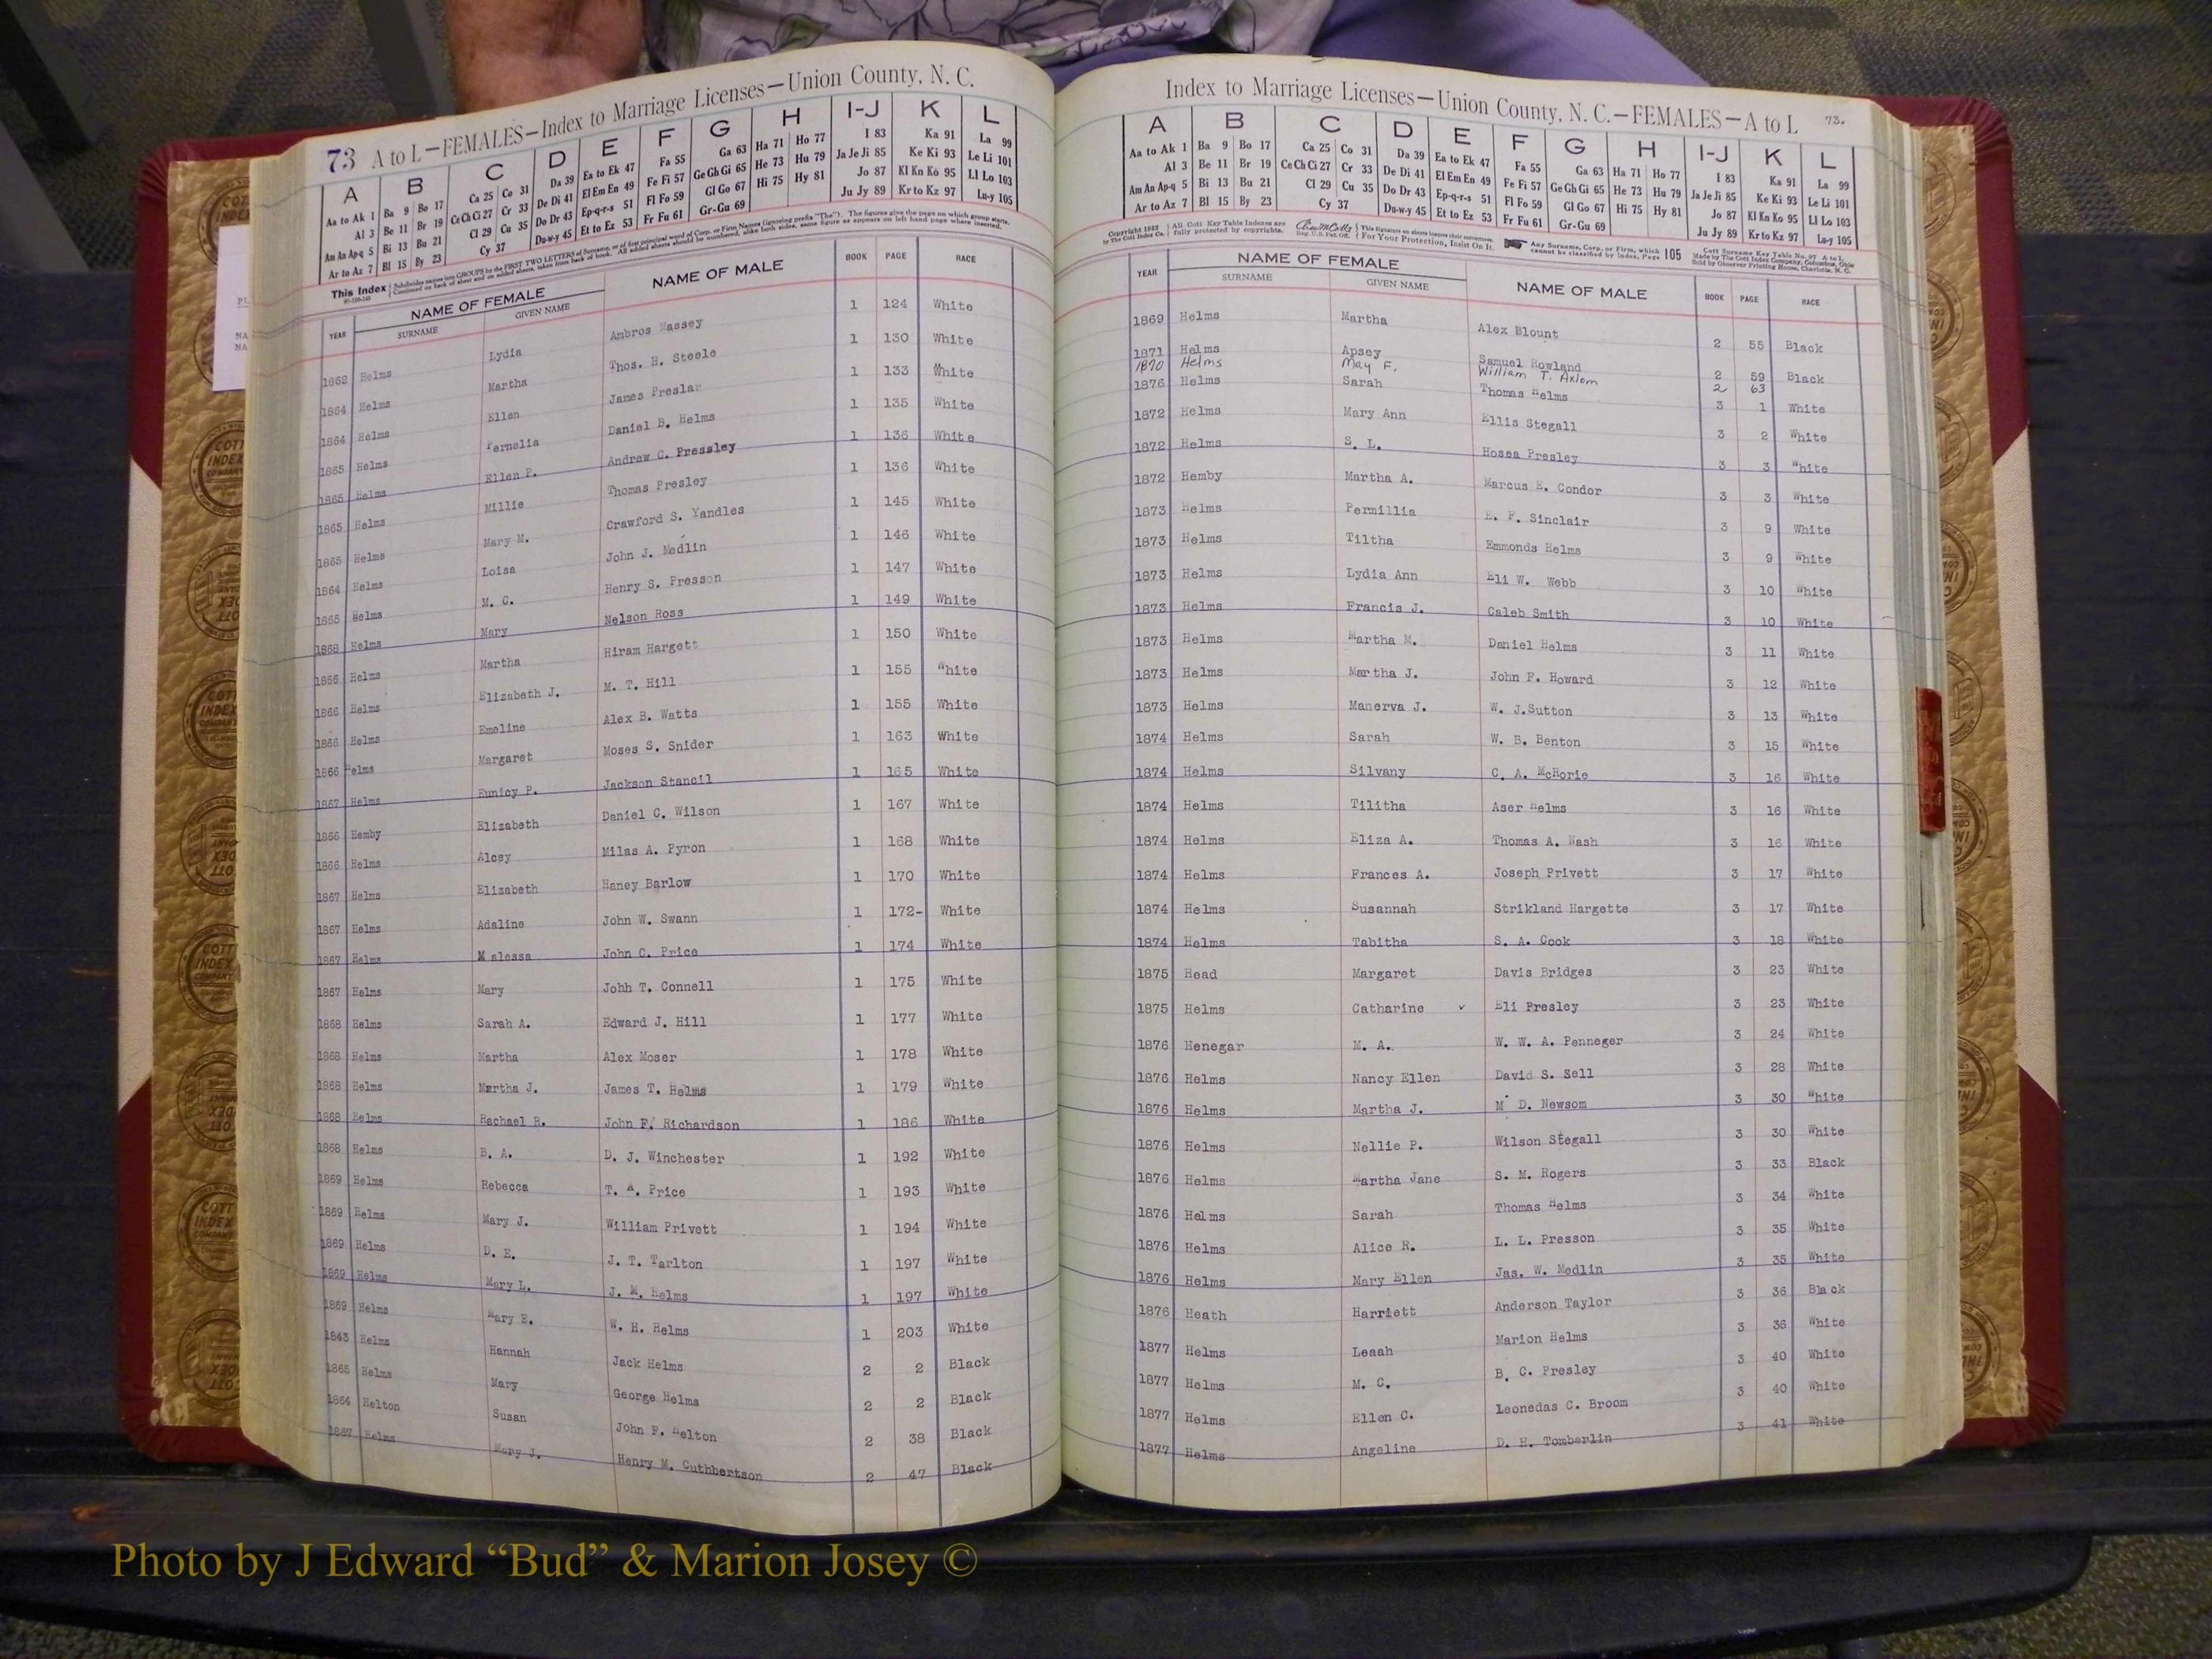 73 A to L—FEMALES—Index to Marriage Licenses—Union County, N. C.
A B C D E F G H I-J K L
Aa to Ak 1 Ba 9 Bo 17 Ca 25 Co 31 Da 39 Ea to Ek 47 Fa 55 Ga 63 Ha 71 Ho 77 I 83 Ka 91 La 99
Al 3 Be 11 Br 19 Ce Ch Ci 27 Cr 33 De Di 41 El Em En 49 Fe Fi 57 Ge Gh Gi 65 He 73 Hu 79 Ja Je Ji 85 Ke Ki 93 Le Li 101
Am An Ap-q 5 Bi 13 Bu 21 Cl 29 Cu 35 Do Dr 43 Ep-q-r-s 51 Fl Fo 59 Gl Go 67 Hi 75 Hy 81 Jo 87 Kl Kn Ko 95 Ll Lo 103
Ar to Az 7 Bl 15 By 23 Cy 37 Du-w-y 45 Et to Ez 53 Fr Fu 61 Gr-Gu 69 Ju Jy 89 Kr to Kz 97 Lu-y 105
This Index Subdivides names into GROUPS by the FIRST TWO LETTERS of Surname, or of first principal word of Corp. or Firm Names (ignoring prefix "The"). The figures give the page on which group starts.
Continued on back of sheet and on added sheets, taken from back of book. All added sheets should be numbered, alike both sides, same figure as appears on left hand page where inserted.
YEAR NAME OF FEMALE SURNAME GIVEN NAME NAME OF MALE BOOK PAGE RACE
1862 Helms Lydia Ambros Massey 1 124 White
1864 Helms Martha Thos. H. Steele 1 130 White
1864 Helms Ellen James Preslar 1 133 White
1865 Helms Fernelia Daniel B. Helms 1 135 White
1865 Helms Ellen P. Andrew C. Pressley 1 136 White
1865 Helms Millie Thomas Presley 1 136 White
1865 Helms Mary M. Crawford S. Yandles 1 145 White
1864 Helms Loisa John J. Medlin 1 146 White
1865 Helms M. C. Henry S. Presson 1 147 White
1868 Helms Mary Nelson Ross 1 149 White
1866 Helms Martha Hiram Hargett 1 150 White
1866 Helms Elizabeth J. M. T. Hill 1 155 White
1866 Helms Emeline Alex B. Watts 1 155 White
1866 Helms Margaret Moses S. Snider 1 163 White
1867 Helms Eunicy P. Jackson Stancil 1 165 White
1866 Hemby Elizabeth Daniel C. Wilson 1 167 White
1866 Helms Alcey Milas A. Pyron 1 168 White
1867 Helms Elizabeth Haney Barlow 1 170 White
1867 Helms Adaline John W. Swann 1 172- White
1867 Helms Malessa John C. Price 1 174 White
1867 Helms Mary Johh T. Connell 1 175 White
1868 Helms Sarah A. Edward J. Hill 1 177 White
1868 Helms Martha Alex Moser 1 178 White
1868 Helms Martha J. James T. Helms 1 179 White
1868 Helms Rachael R. John F. Richardson 1 186 White
1868 Helms B. A. D. J. Winchester 1 192 White
1869 Helms Rebecca T. A. Price 1 193 White
1869 Helms Mary J. William Privett 1 194 White
1869 Helms D. E. J. T. Tarlton 1 197 White
1869 Helms Mary L. J. M. Helms 1 197 White
1869 Helms Mary E. W. H. Helms 1 203 White
1843 Helms Hannah Jack Helms 2 2 Black
1865 Helms Mary George Helms 2 2 Black
1864 Helton Susan John F. Helton 2 38 Black
1867 Helms Mary J. Henry M. Cuthbertson 2 47 Black
Index to Marriage Licenses—Union County, N. C.—FEMALES—A to L 73.
A B C D E F G H I-J K L
Aa to Ak 1 Ba 9 Bo 17 Ca 25 Co 31 Da 39 Ea to Ek 47 Fa 55 Ga 63 Ha 71 Ho 77 I 83 Ka 91 La 99
Al 3 Be 11 Br 19 Ce Ch Ci 27 Cr 33 De Di 41 El Em En 49 Fe Fi 57 Ge Gh Gi 65 He 73 Hu 79 Ja Je Ji 85 Ke Ki 93 Le Li 101
Am An Ap-q 5 Bi 13 Bu 21 Cl 29 Cu 35 Do Dr 43 Ep-q-r-s 51 Fl Fo 59 Gl Go 67 Hi 75 Hy 81 Jo 87 Kl Kn Ko 95 Ll Lo 103
Ar to Az 7 Bl 15 By 23 Cy 37 Du-w-y 45 Et to Ez 53 Fr Fu 61 Gr-Gu 69 Ju Jy 89 Kr to Kz 97 Lu-y 105
Copyright 1922 by The Cott Index Co. All Cott Key Table Indexes are fully protected by copyrights. Reg. U.S. Pat. Off. This Signature on sheets insures their correctness. For Your Protection, Insist On It. Any Surname, Corp. or Firm, which cannot be classified by Index, Page 105 Cott Surname Key Table No. 97 A to L Made by The Cott Index Company, Columbus, Ohio Sold by Observer Printing House, Charlotte, N. C.
YEAR NAME OF FEMALE SURNAME GIVEN NAME NAME OF MALE BOOK PAGE RACE
1869 Helms Martha Alex Blount 2 55 Black
1871 Helms Apsey Samuel Rowland 2 59 Black
1870 Helms May F. William T. Axlom 2 63
1876 Helms Sarah Thomas Helms 3 1 White
1872 Helms Mary Ann Ellis Stegall 3 2 White
1872 Helms S. L. Hosea Presley 3 3 White
1872 Hemby Martha A. Marcus E. Condor 3 3 White
1873 Helms Permillia E. F. Sinclair 3 9 White
1873 Helms Tiltha Emmonds Helms 3 9 White
1873 Helms Lydia Ann Eli W. Webb 3 10 White
1873 Helms Francis J. Caleb Smith 3 10 White
1873 Helms Martha M. Daniel Helms 3 11 White
1873 Helms Martha J. John F. Howard 3 12 White
1873 Helms Manerva J. W. J.Sutton 3 13 White
1874 Helms Sarah W. B. Benton 3 15 White
1874 Helms Silvany C. A. McRorie 3 16 White
1874 Helms Tilitha Aser Helms 3 16 White
1874 Helms Eliza A. Thomas A. Nash 3 16 White
1874 Helms Frances A. Joseph Privett 3 17 White
1874 Helms Susannah Strikland Hargette 3 17 White
1874 Helms Tabitha S. A. Cook 3 18 White
1875 Head Margaret Davis Bridges 3 23 White
1875 Helms Catharine ✓ Eli Presley 3 23 White
1876 Henegar M. A. W. W. A. Penneger 3 24 White
1876 Helms Nancy Ellen David S. Sell 3 28 White
1876 Helms Martha J. M D. Newsom 3 30 White
1876 Helms Nellie P. Wilson Stegall 3 30 White
1876 Helms Martha Jane S. M. Rogers 3 33 Black
1876 Helms Sarah Thomas Helms 3 34 White
1876 Helms Alice R. L. L. Presson 3 35 White
1876 Helms Mary Ellen Jas. W. Medlin 3 35 White
1876 Heath Harriett Anderson Taylor 3 36 Black
1877 Helms Leaah Marion Helms 3 36 White
1877 Helms M. C. B. C. Presley 3 40 White
1877 Helms Ellen C. Leonedas C. Broom 3 40 White
1877 Helms Angeline D. H. Tomberlin 3 41 White
Photo by J Edward “Bud” & Marion Josey ©